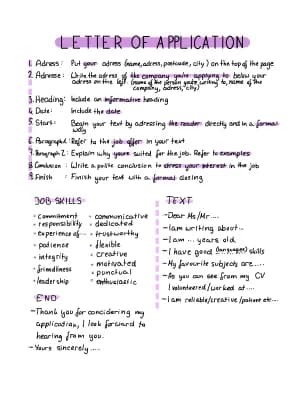 LETTER OF APPLICATION
1. Adress: Put your adress (name, adress, postcode, city) on the top of the page
2. Adresse: Write the adress of the company you're applying to below your
adress on the left (name of the person you're writing to, name of the
company, adress, city)
3. Heading: Include an informative heading
4. Date: Include the date
5. Start: Begin your text by adressing the reader directly and in a formal
way
6. Paragraph 1: Refer to the job offer in your text
7. Paragraph 2: Explain why youre suited for the job. Refer to examples
8. Conclusion: Write a polite conclusion to stress your interest in the job
9. Finish: Finish your text with a formal closing
JOB SKILLS
• commitment
• responsibility
• experience of...
• patience
• integrity
• friendliness
• leadership
• communicative
• dedicated
• trustworthy
• flexible
• creative
• motivated
• punctual
• enthusiastic
END
- Thank you for considering my
application, I look forward to
hearing from you.
- Yours sincerely.....
TEXT
- Dear Ms/Mr....
- I am writing about..
- I am ... years old
- I have good (languages) skills
- My favourite subjects are.....
- As you can see from my CV
I volunteered/worked at....
- I am reliable/creative/patient etc...